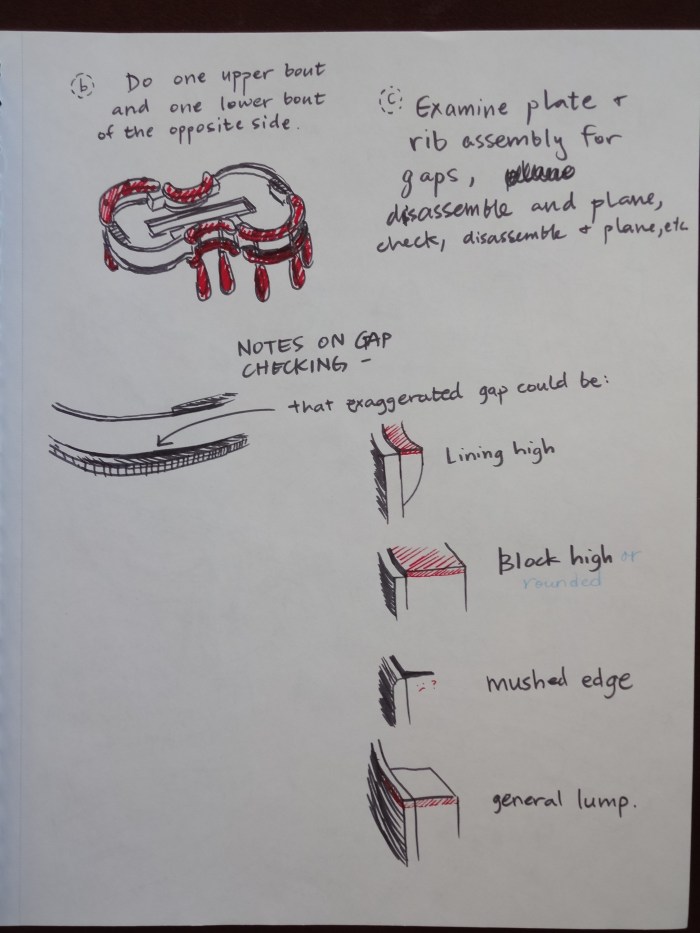 (b) Do one upper bout
and one lower bout
of the opposite side.
(c) Examine plate +
rib assembly for
gaps,
disassemble and plane,
check, disassemble + plane, etc
NOTES ON GAP
CHECKING –
that exaggerated gap could be:
Lining high
Block high or
rounded
:) ?
mushed edge
general lump.